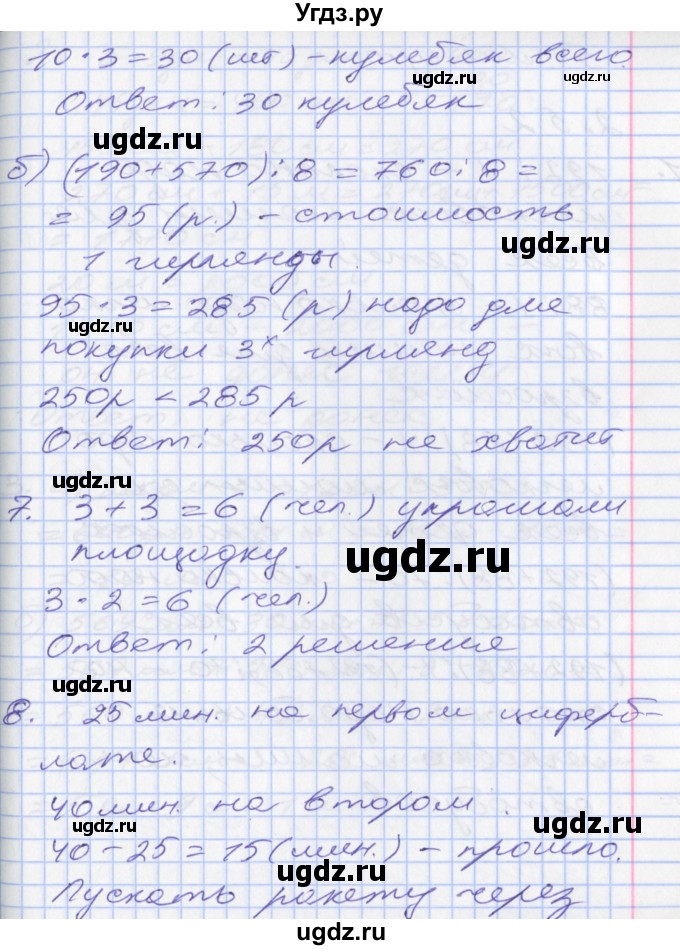 Угдз.ру
10 · 3 = 30 (шт) - кулебяк всего.
ugdz.ru ugdz.ru
Ответ: 30 кулебяк
ugdz.ru
б) (190 + 570) : 8 = 760 : 8 =
ugdz.ru
= 95 (р.) - стоимость
1 гирлянды.
ugdz.ru
95 · 3 = 285 (р) надо для
ugdz.ru
покупки 3х гирлянд
250р < 285 р
ugdz.ru
Ответ: 250р не хватит
ugdz.ru
7. 3 + 3 = 6 (чел.) украшали
площадку.
ugdz.ru
3 · 2 = 6 (чел.)
ugdz.ru
Ответ: 2 решения
ugdz.ru
8. 25 мин. на первом циферб-
лате.
ugdz.ru
40 мин. на втором.
ugdz.ru
40 - 25 = 15 (мин.) - прошло.
Пускать ракету через
ugdz.ru
ugdz.ru